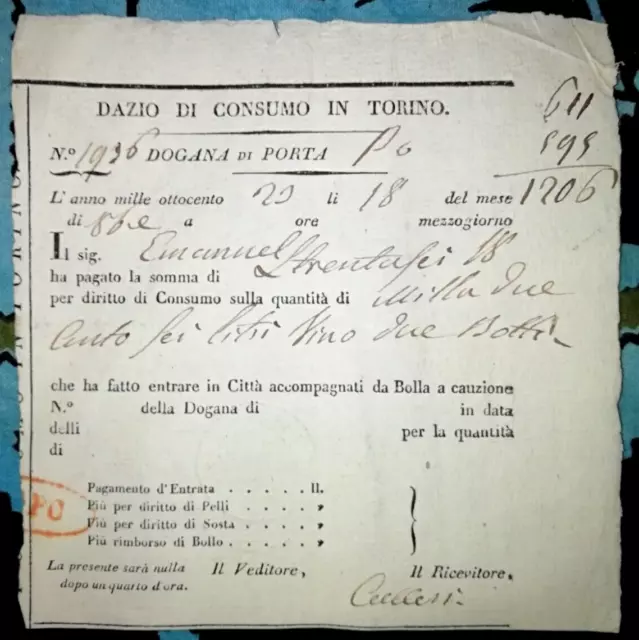 DAZIO DI CONSUMO IN TORINO.
611
595
1206
N.º 1936 DOGANA DI PORTA Po
L'anno mille ottocento 29 li 18 del mese
di 8bre a ore mezzogiorno
Il sig. Emanuel
ha pagato la somma di L trentasei 18
per diritto di Consumo sulla quantità di Milla due
cento sei litri Vino due Botti
che ha fatto entrare in Città accompagnati da Bolla a cauzione
N.º della Dogana di in data
delli per la quantità
di
Pagamento d'Entrata . . . . . ll.
Più per diritto di Pelli . . . . . "
Più per diritto di Sosta . . . . . "
Più rimborso di Bollo . . . . . . "
PO
La presente sarà nulla Il Veditore, Il Ricevitore,
dopo un quarto d'ora.